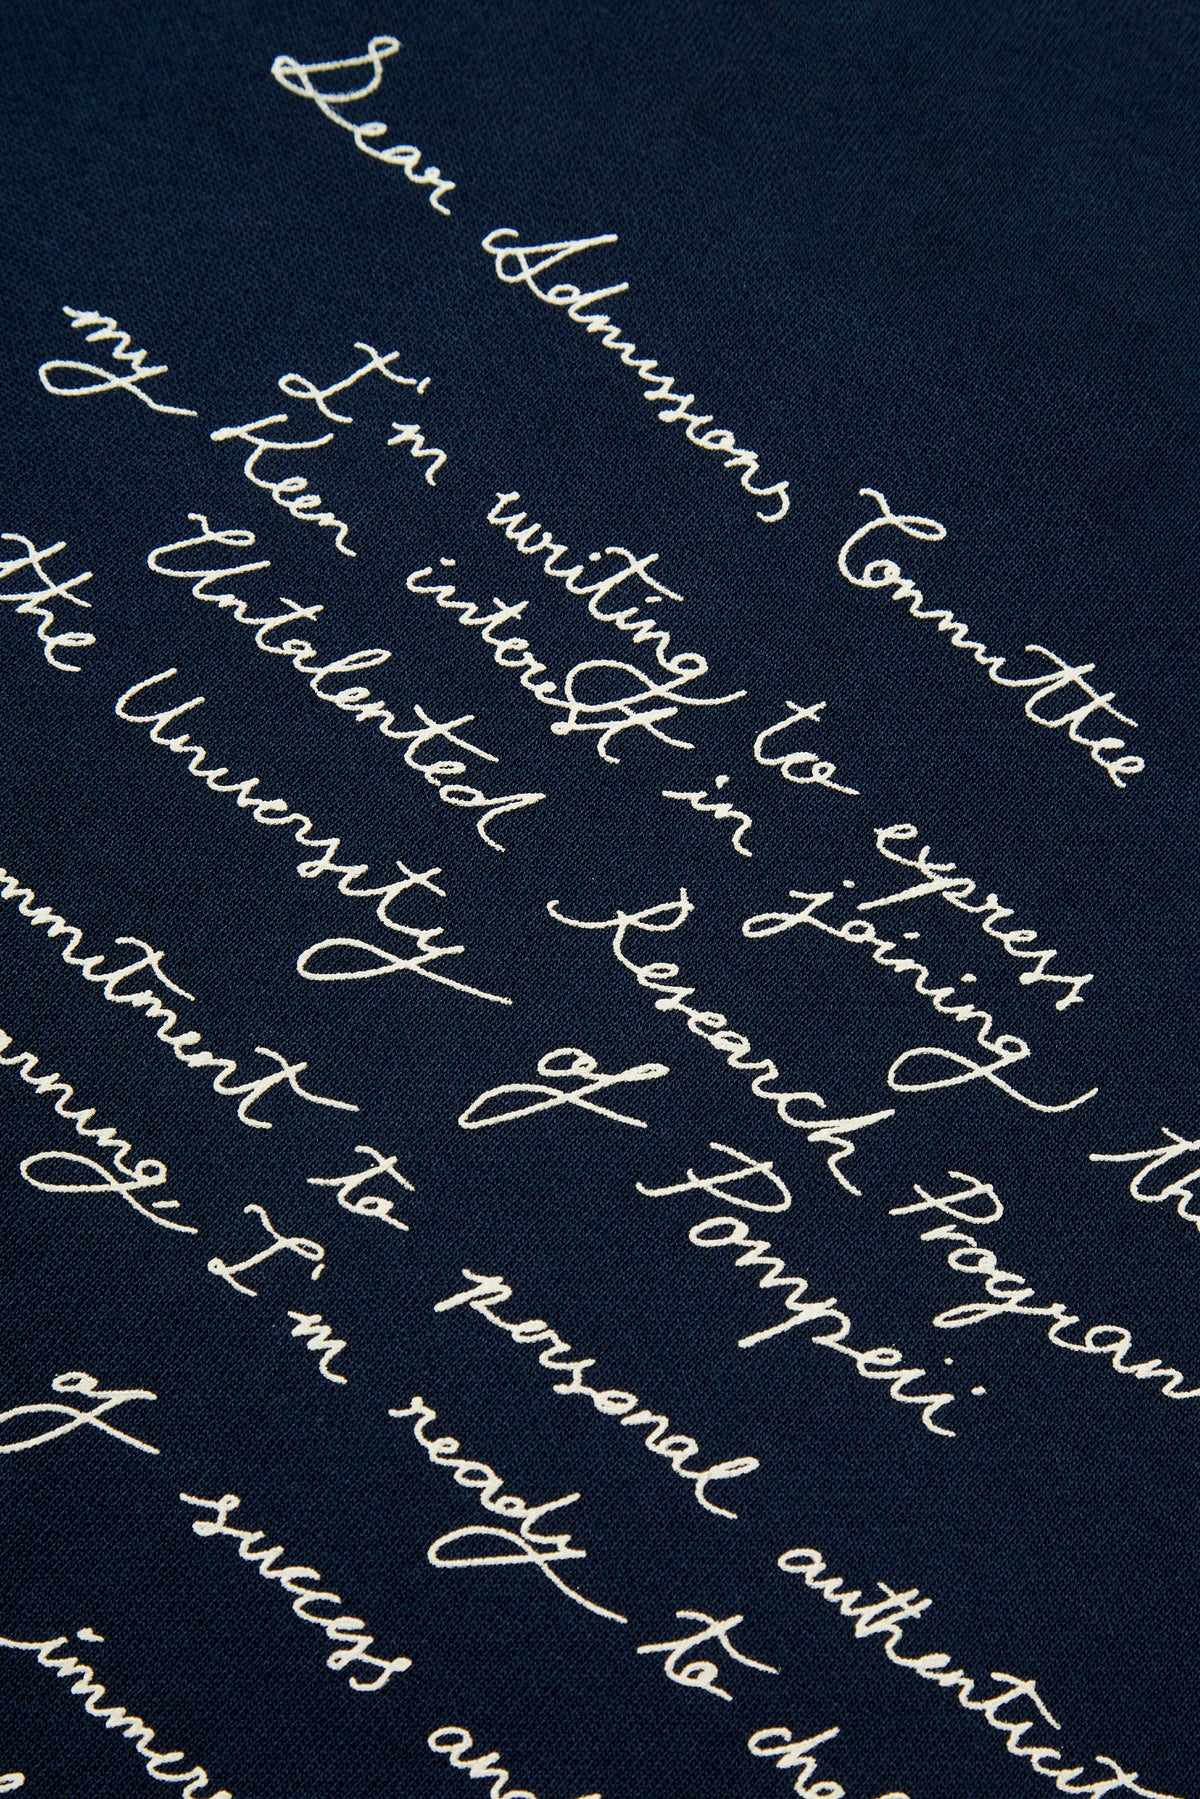 Dear Admissions Committee
I'm writing to express
my Keen interest in joining th
Untalented Research Program
the University of Pompeii
mmitment to personal authenticit
arning, I'm ready to cha
of success and
immer